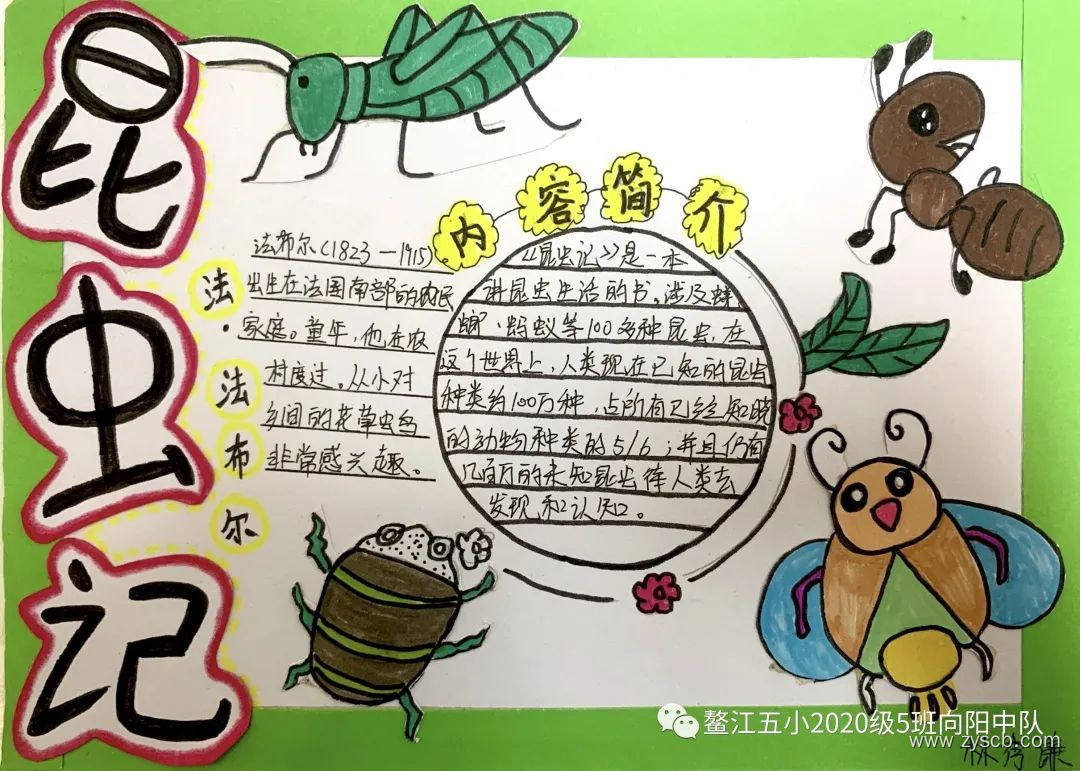 昆虫记
法·法布尔
法布尔(1823—1915)
出生在法国南部的农民
家庭。童年,他在农
村度过。从小对
乡间的花草虫鸟
非常感兴趣。
内容简介
《昆虫记》是一本
讲昆虫生活的书。涉及蜣
螂、蚂蚁等100多种昆虫,在
这个世界上,人类现在已知的昆虫
种类约100万种,占所有已经知晓
的动物种类的5/6;并且仍有
几百万的未知昆虫待人类去
发现和认知。
鳌江五小2020级5班向阳中队
www.zyscb.com